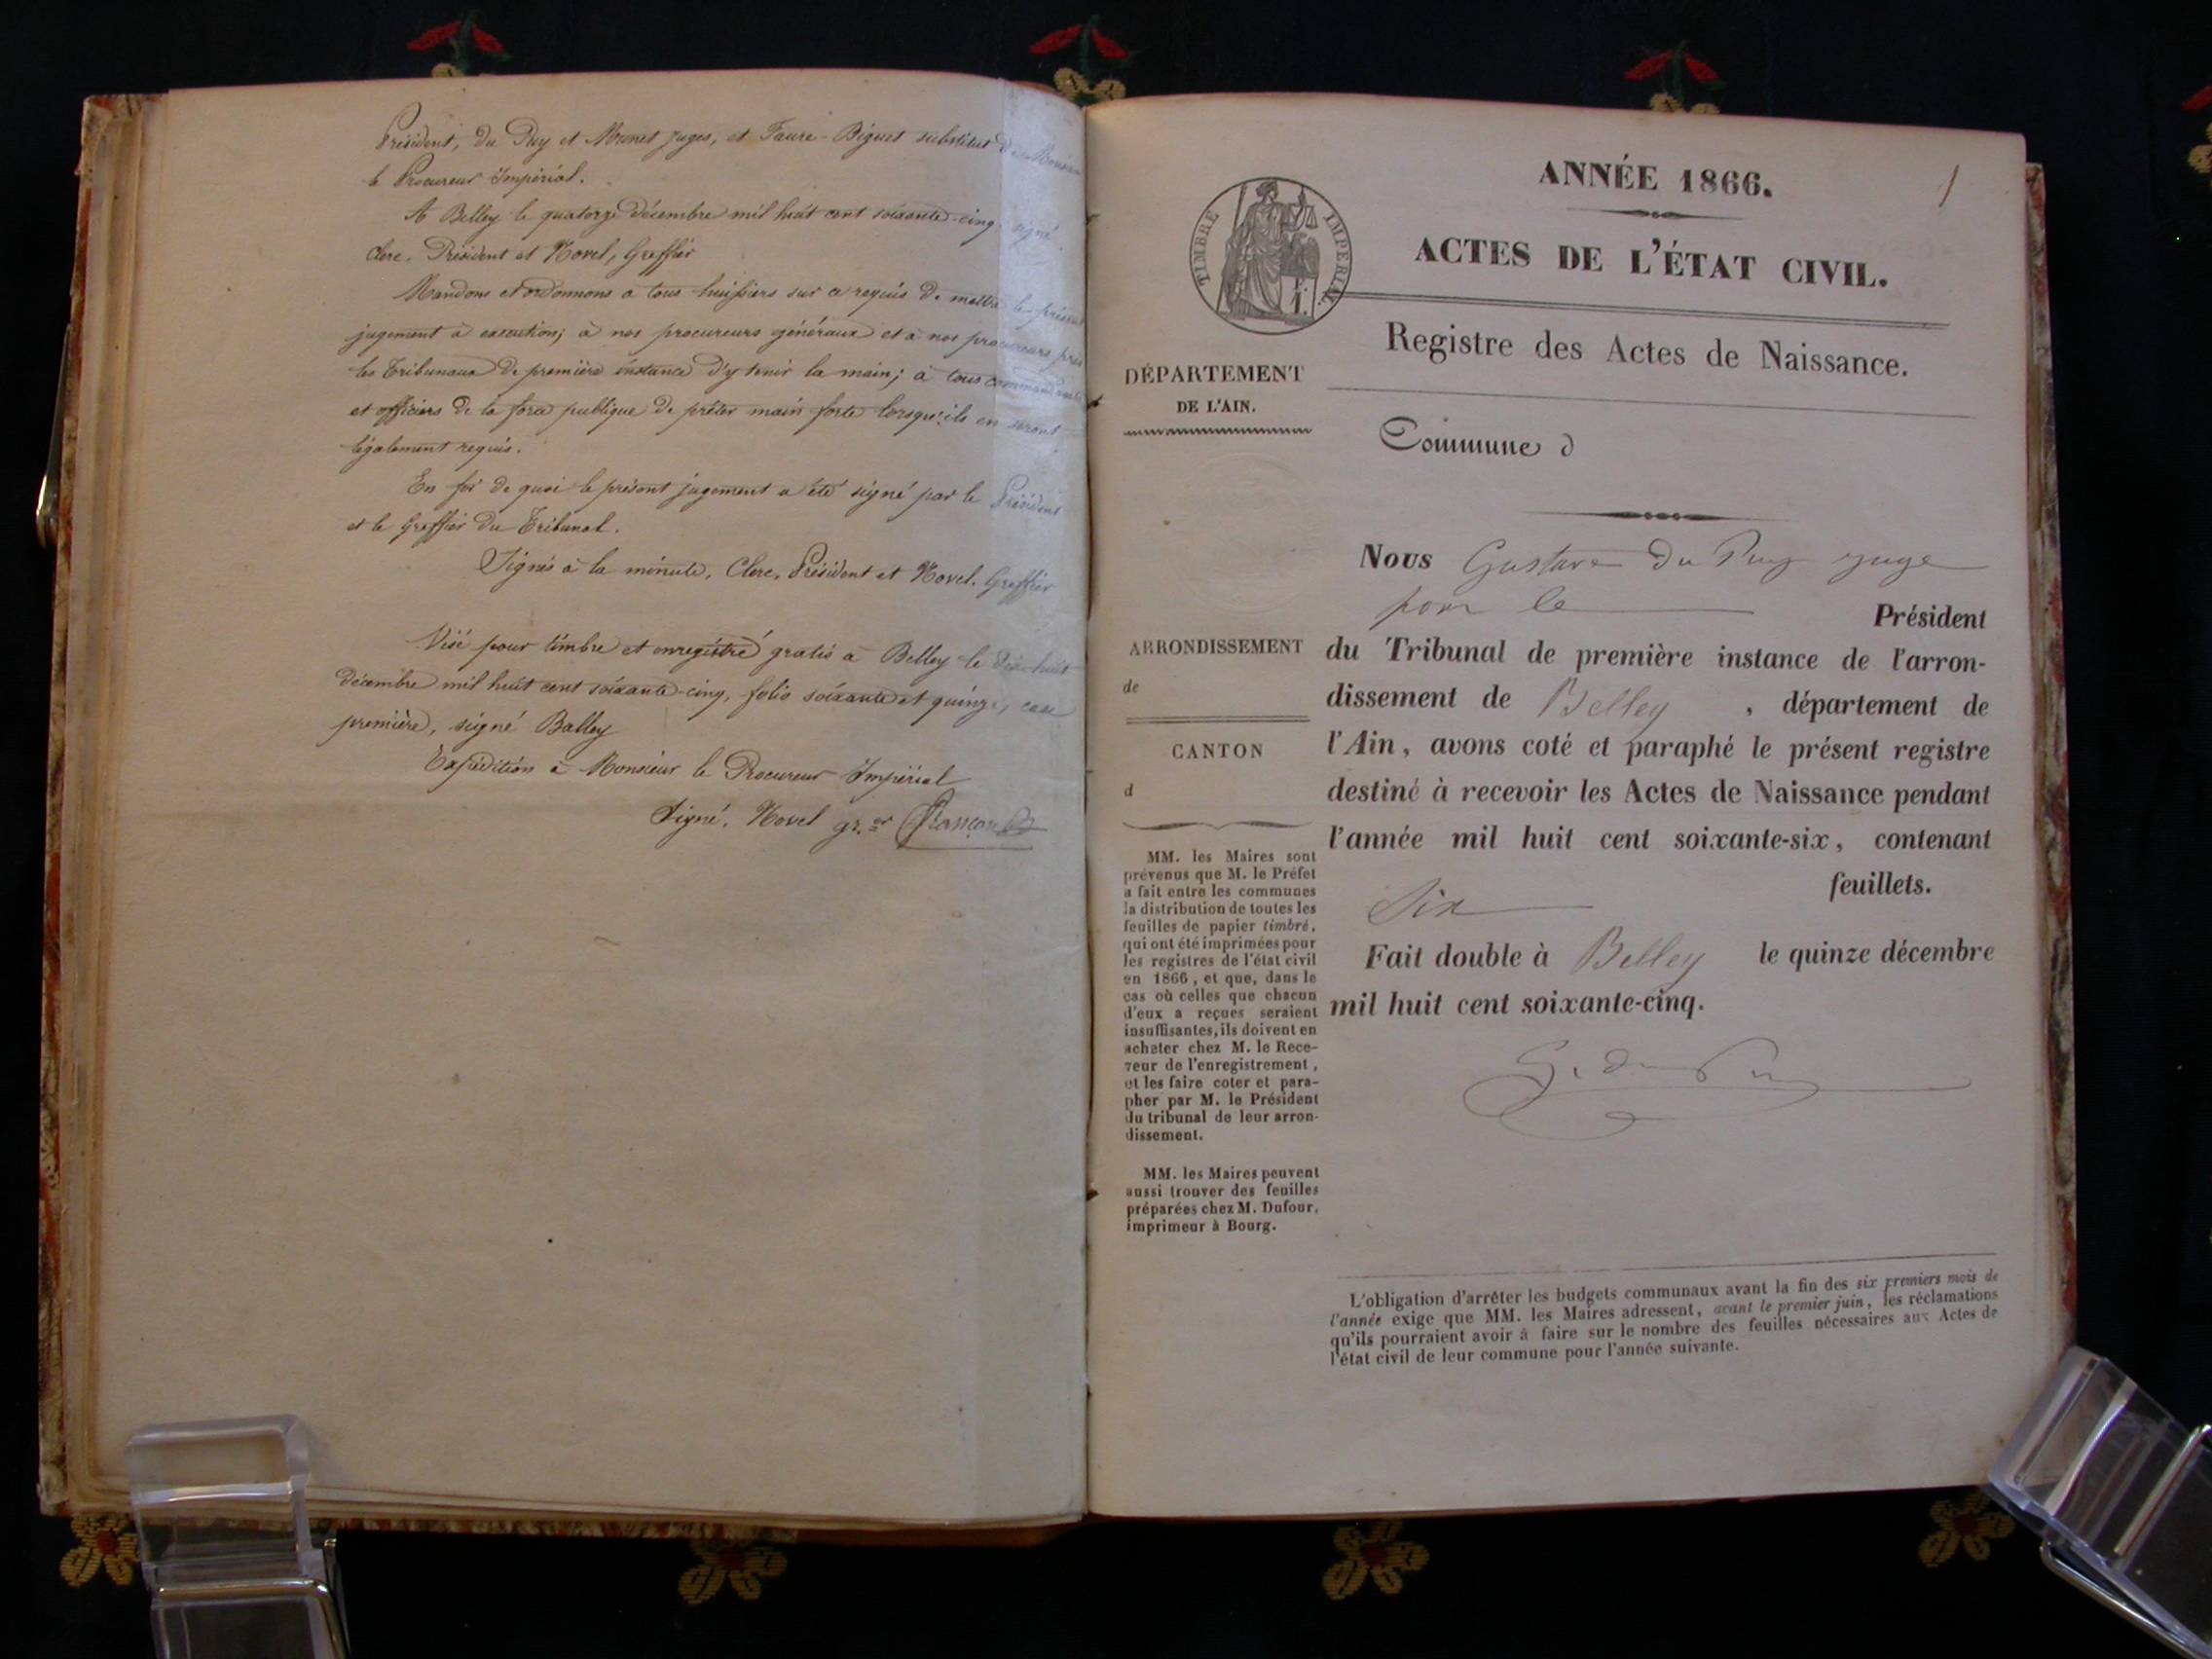 Président, du Puy et Munet juges, et Faure-Biguet substitut de Monsieur
le Procureur Impérial.
A Belley le quatorze décembre mil huit cent soixante-cinq. signé.
Clerc. Président et Hovel, Greffier
Mandons et ordonnons a tous huissiers sur ce requis de mettre le présent
jugement à execution; à nos procureurs généraux et a nos procureurs près
les Tribunaux de première instance d'y tenir la main; à tous commandants
et officiers de la force publique de prêter main forte lorsqu'ils en seront
légalement requis.
En foi de quoi le présent jugement a été signé par le Président
et le Greffier du Tribunal.
Signés à la minute, Clerc, Président et Hovel. Greffier
Visé pour timbre et enregistré gratis à Belley le dix-huit
décembre mil huit cent soixante-cinq, folio soixante et quinze, case
première, signé Balley
Expédition à Monsieur le Procureur Impérial
Signé. Hovel gr.er
1
ANNÉE 1866.
ACTES DE L'ÉTAT CIVIL.
TIMBRE IMPERIAL.
1.
Registre des Actes de Naissance.
DÉPARTEMENT
DE L'AIN.
Commune d
Nous Gustave du Puy juge
pour le Président
du Tribunal de première instance de l'arron-
dissement de Belley, département de
l'Ain, avons coté et paraphé le présent registre
destiné à recevoir les Actes de Naissance pendant
l'année mil huit cent soixante-six, contenant
Six feuillets.
Fait double à Belley le quinze décembre
mil huit cent soixante-cinq.
G. du Puy
ARRONDISSEMENT
de
CANTON
d
MM. les Maires sont
prévenus que M. le Préfet
a fait entre les communes
la distribution de toutes les
feuilles de papier timbré,
qui ont été imprimées pour
les registres de l'état civil
en 1866, et que, dans le
cas où celles que chacun
d'eux a reçues seraient
insuffisantes, ils doivent en
acheter chez M. le Rece-
veur de l'enregistrement,
et les faire coter et para-
pher par M. le Président
du tribunal de leur arron-
dissement.
MM. les Maires peuvent
aussi trouver des feuilles
préparées chez M. Dufour,
imprimeur à Bourg.
L'obligation d'arrêter les budgets communaux avant la fin des six premiers mois de
l'année exige que MM. les Maires adressent, avant le premier juin, les réclamations
qu'ils pourraient avoir à faire sur le nombre des feuilles nécessaires aux Actes de
l'état civil de leur commune pour l'année suivante.